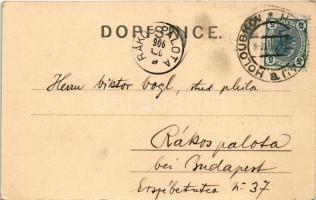 DOPISNICE.
RÁKOSPALOTA
906
HOLOUBKOV
5 5
Herrn Viktor Vogl, stud. phil.
Rákospalota
bei Budapest
Erzsébetutca Nr 37